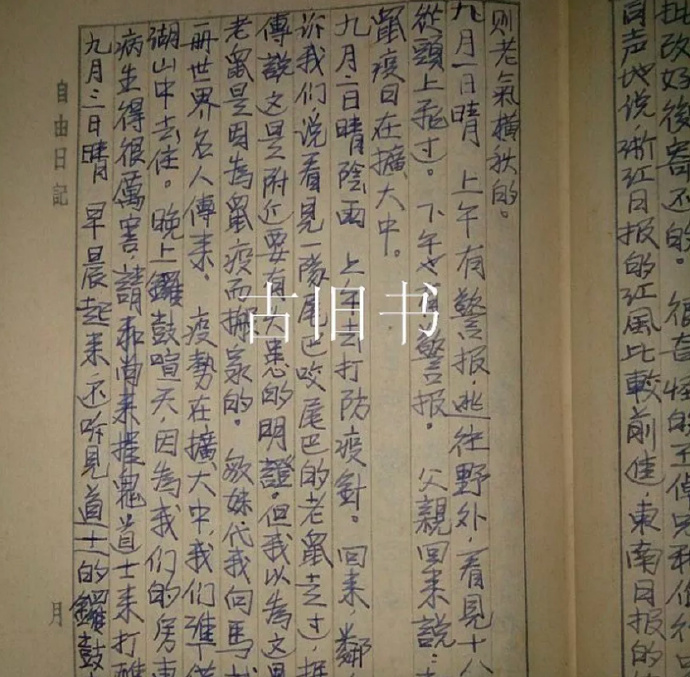 批改好後寄还的。很奇怪的
同声地说，浙江日报的江風比較前佳，東南日报的
则老氣横秋的。
九月一日晴 上午有警报，逃往野外，看見十八
從頭上飛过。下午又有警报。父親回来說：
鼠疫日在擴大中。
九月二日晴陰雨 上午去打防疫針。回来鄰
诉我们说看見一隊尾巴咬尾巴的老鼠走过，据
傳說这是附近要有大患的明證。但我以為这是
老鼠是因為鼠疫而搬家的。敏妹代我向馬
册世界名人傳来。疫勢在擴大中，我们準備
湖山中去住。晚上鑼鼓喧天，因為我们的房東
病生得很厲害，請和尚来捉鬼道士来打醮
九月三日晴 早晨起来还听見道士的鑼鼓
自由日記
月
古旧书